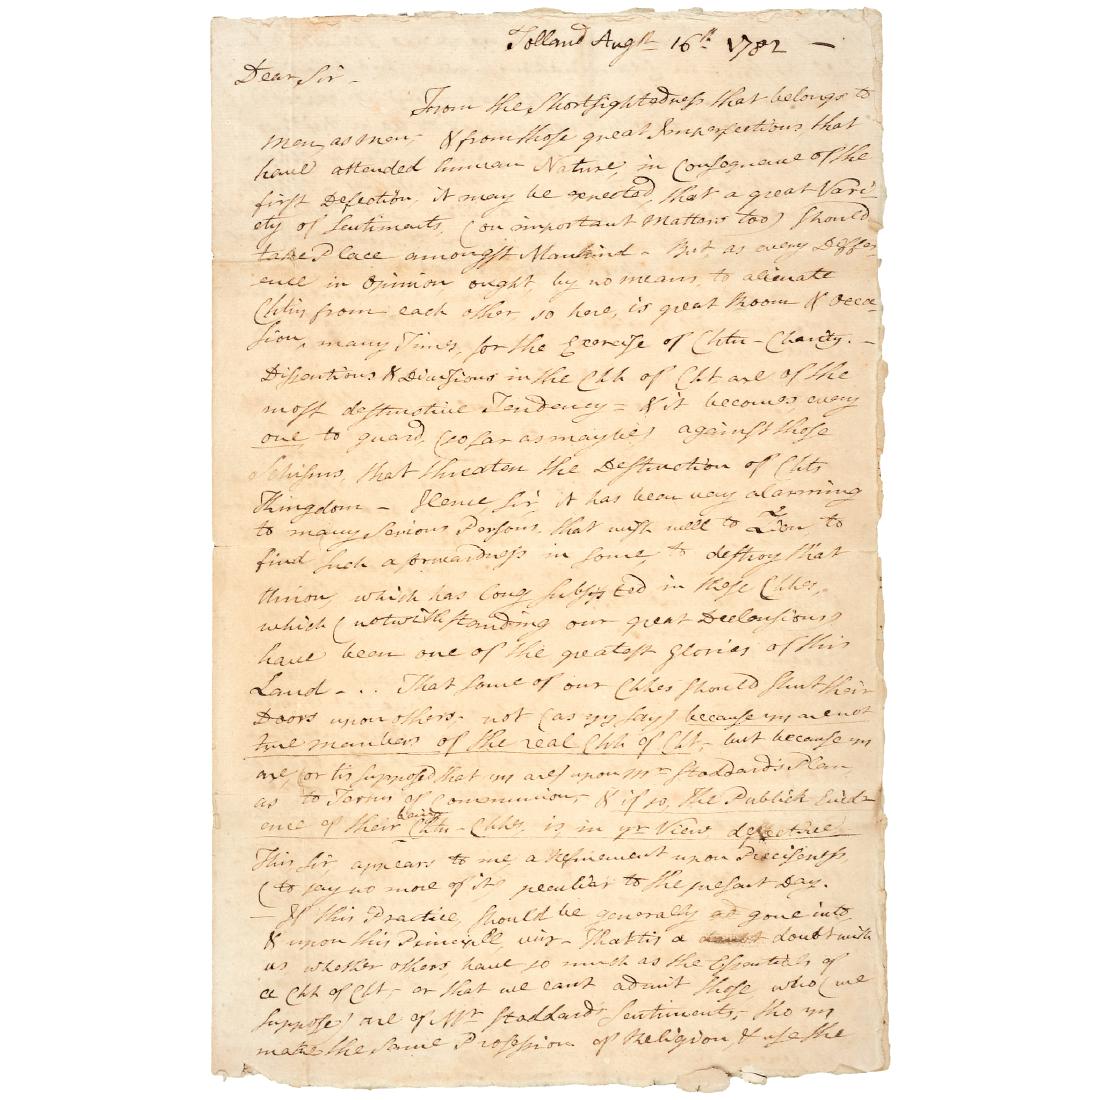 Tolland Augst 16th 1782 —
Dear Sir -
From the Shortsightedness that belongs to
men, as men, & from those great Imperfections, that
have attended human Nature, in Consequence of the
first Defection, it may be expected, that a great Vari-
ety of Sentiments, (on important Matters too) should
take Place amongst Mankind - But, as every Differ-
ence in Opinion ought, by no means, to alienate
Chtns from each other, so here, is great Room & Occa-
sion, many Times, for the Exercise of Chtn-Charity. -
Dissentions & Divisions in the Chh of Cht are of the
most destructive Tendency - & it becomes every
one, to guard, (so far as may be) against those
Schisms, that threaten the Destruction of Chts
Kingdom - Hence, Sir, it has been very alarming
to many Serious Persons, that wish well to Zion, to
find such a forwardness in some, to destroy that
Union, which has long subsisted in these Chhes,
which (notwithstanding our great Declensions)
have been one of the greatest Glories of this
Land - .. That some of our Chhes should shut their
Doors upon others - not (as ym say) because ym are not
true members of the real Chh of Cht, - but because ym
are, (or tis supposed that ym are) upon Mr Stoddard's Plan,
as to Terms of Communion, - & if so, the Publick Evid-
ence of their being Chtn-Chhes, is in yr View defective.
This Sir, appears to me, a Refinement upon Preciseness,
(to say no more of it) peculiar to the present Day.
- If this Practice, should be generally gone into,
& upon this Principle, viz - That tis a doubt with
us whether others have so much as the Essentials of
a Chh of Cht, - or that we cant admit those, who (we
suppose) are of Mr Stoddards Sentiments, - tho ym
make the same Profession of Religion, & use the